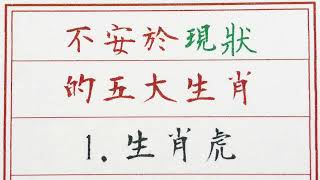 不安於現狀
的五大生肖
1.生肖虎